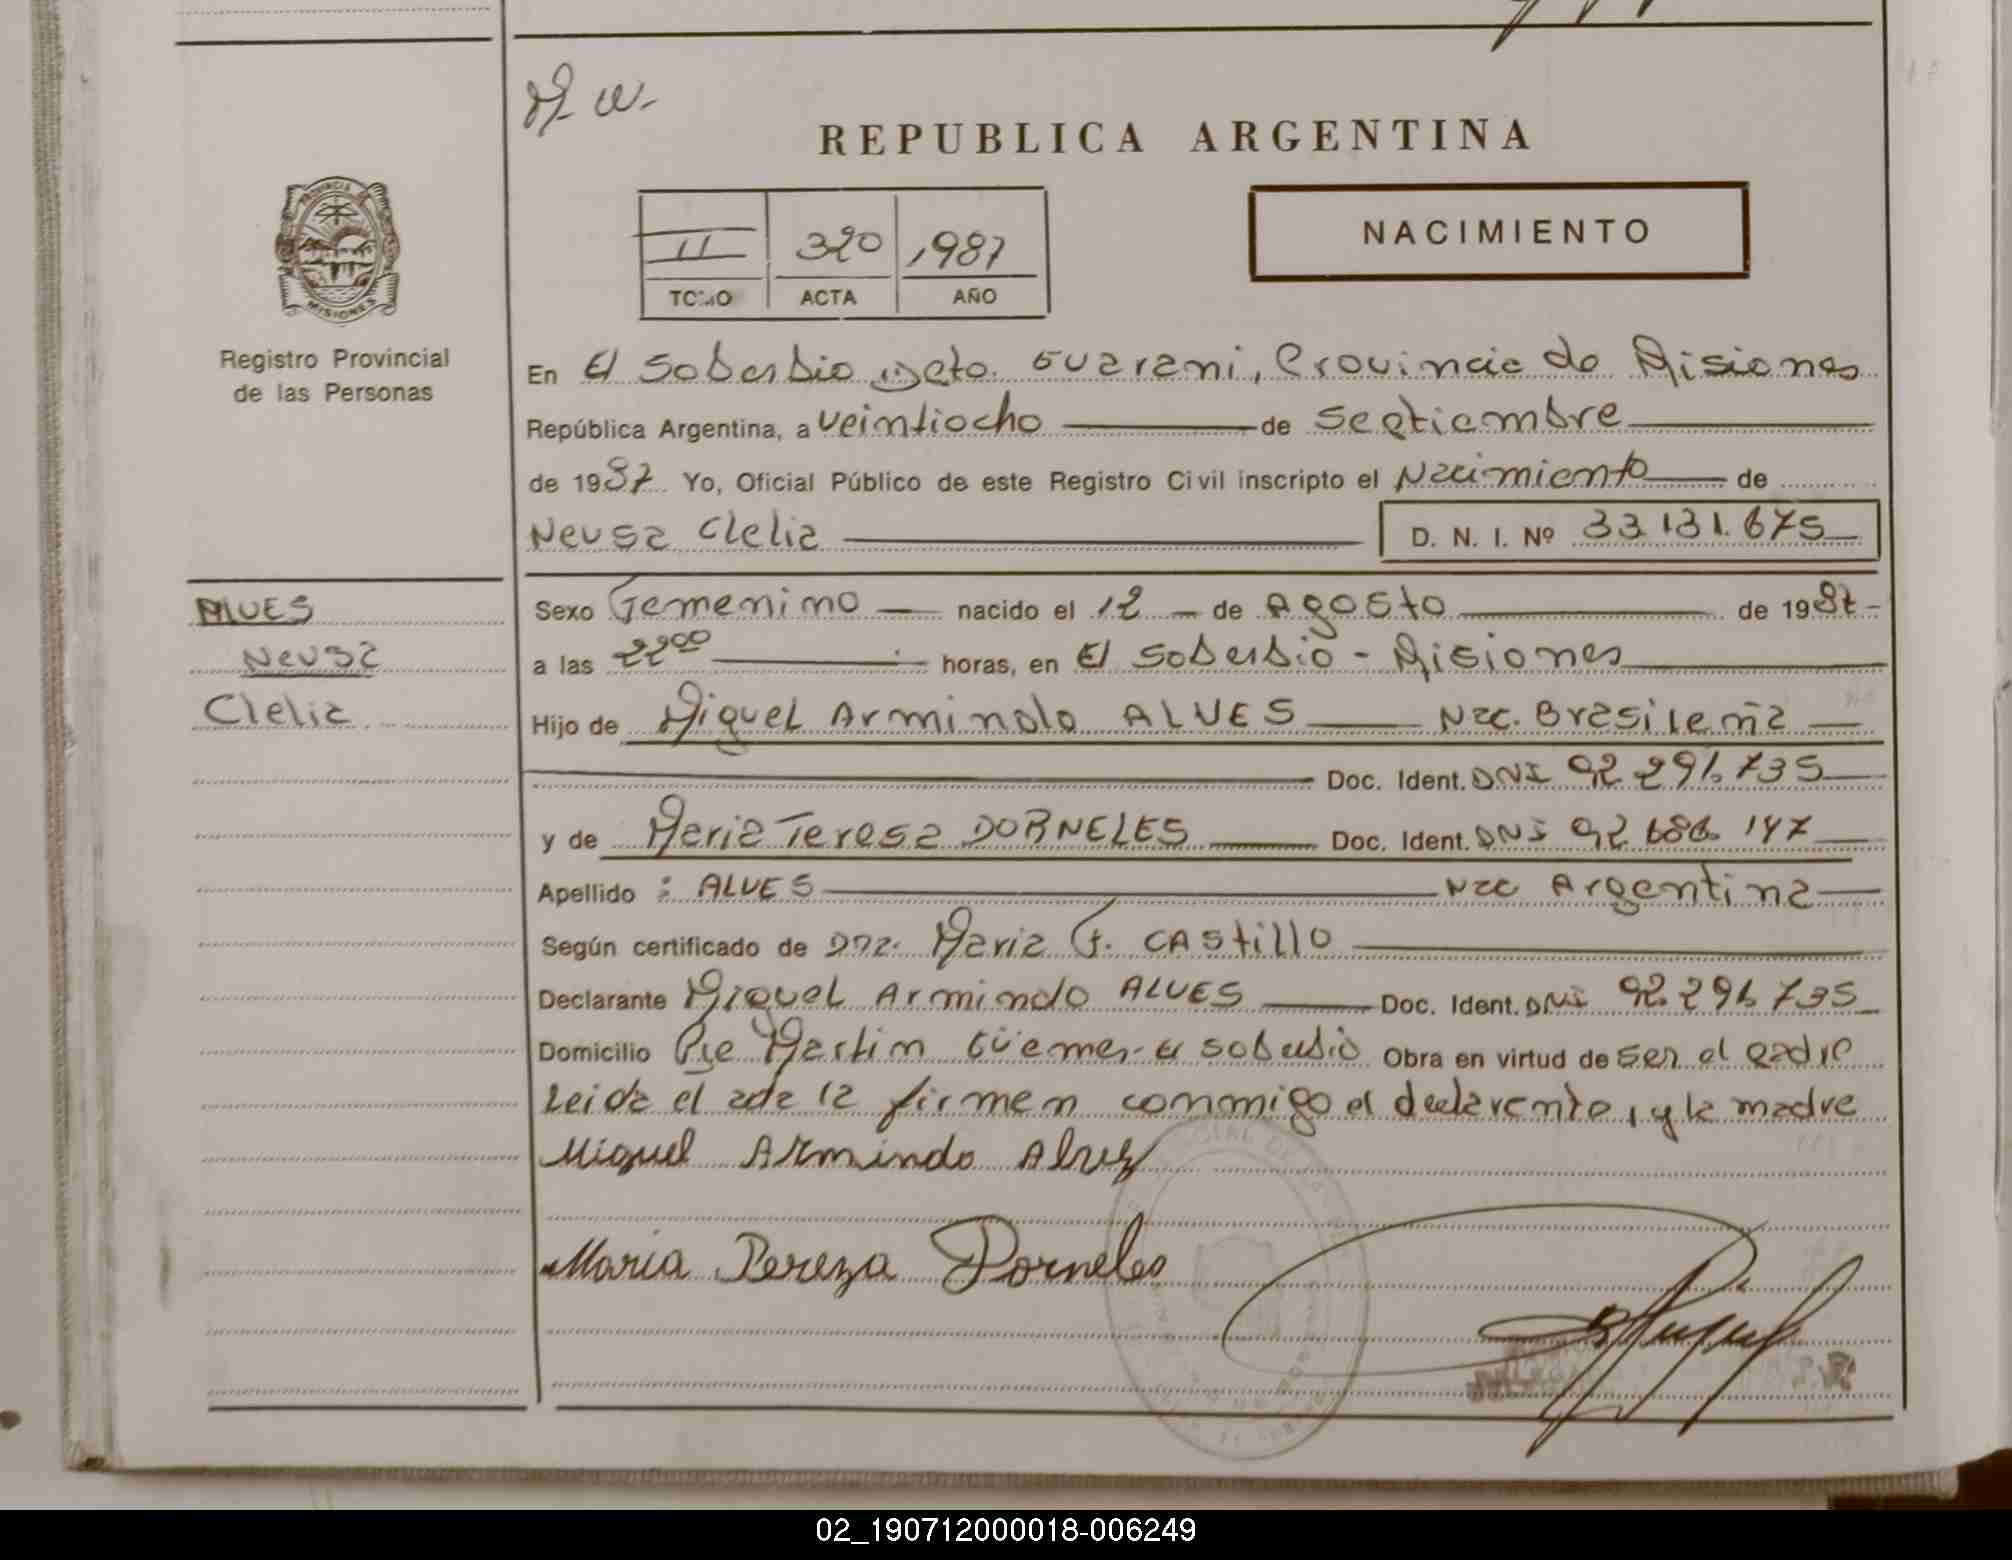 REPUBLICA ARGENTINA
II 320 1987
TOMO ACTA AÑO
NACIMIENTO
PROVINCIA
MISIONES
Registro Provincial
de las Personas
En El Soberbio, Dpto. Guarani, Provincia de Misiones
República Argentina, a veintiocho de Septiembre
de 1987 Yo, Oficial Público de este Registro Civil inscripto el Nacimiento de
Neusa Clelia D. N. I. Nº 33.131.675
ALVES
Neusa
Clelia
Sexo Femenino nacido el 12 de Agosto de 1987
a las 22⁰⁰ horas, en El Soberbio - Misiones
Hijo de Miguel Armindo ALVES Nac. Brasileña
Doc. Ident. DNI 92.296.735
y de Maria Teresa DORNELES Doc. Ident. DNI 92.686.147
Apellido : ALVES Nac Argentina
Según certificado de Dña. Maria F. CAStillo
Declarante Miguel Armindo ALVES Doc. Ident. DNI 92.296.735
Domicilio Pje Martin Güemes - El Soberbio Obra en virtud de ser el padre
Leida el acta la firman conmigo el declarante, y la madre
Miguel Armindo Alvez
Maria Tereza Dorneles
02_190712000018-006249